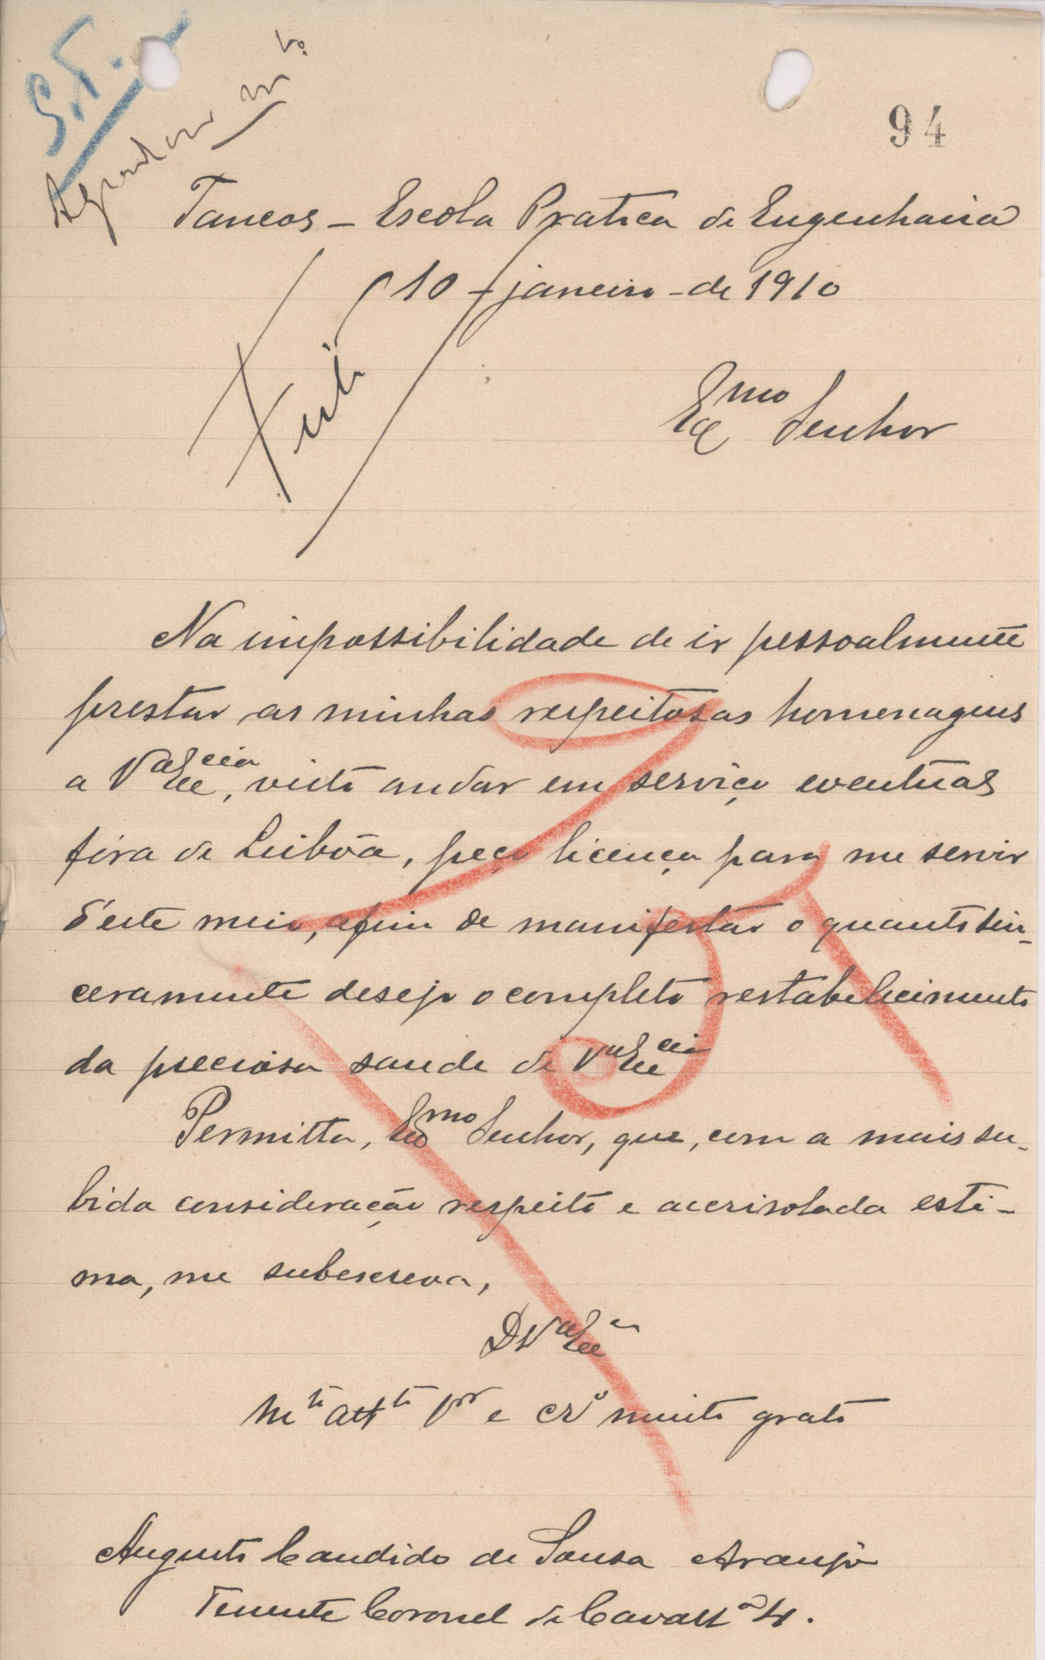 S.T.
Agradecer m.to
94
Tancos – Escola Pratica de Engenharia
10 – janeiro – de 1910
Exmo Senhor
Na impossibilidade de ir pessoalmente
prestar as minhas respeitosas homenagens
a Va Excia, visto andar em serviço eventual
fóra de Lisbôa, peço licença para me servir
d'este meio, afim de manifestar o quanto sin-
ceramente desejo o completo restabelecimento
da preciosa saude de Va Excia
Permitta, Exmo Senhor, que, com a mais su-
bida consideração respeito e acrisolada esti-
ma, me subscreva,
D V a Exa
Mto atto Vor e cro muito grato
Augusto Candido de Sousa Araujo
Tenente Coronel de Cavalla 4.